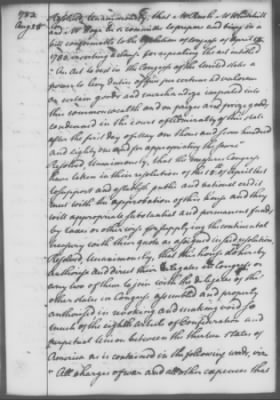 1782
Aug 28
Resolved, Unanimously, that Mr
and Mr be a committee to prepare and bring in a
bill conformable to the of Congress of April
1782, inserting a clause for repealing the act entitled
"An Act to vest in the Congress of the United States a
power to levy duties of five per centum ad valorem
on certain goods and merchandize imported into
this commonwealth and on prizes and prize goods
condemned in the court of admiralty of this state
after the first day of May one thousand seven hundred
and eighty one and for appropriating the same"
Resolved, Unanimously, that the measures Congress
have taken in their resolution of the 18 of April last
to support and establish public and national credit
meet with the approbation of this house and they
will appropriate substantial and permanent funds
by taxes or otherwise for supplying the continental
treasury with their quota as assigned in said resolution.
Resolved, Unanimously, that this house do hereby
authorise and direct their delegates in Congress or
any two of them to join with the delegates of the
other states in Congress assembled and properly
authorised in revoking and making void so
much of the eighth article of Confederation and
perpetual union between the thirteen states of
America as is contained in the following words, viz
"All charges of war and all other expences that